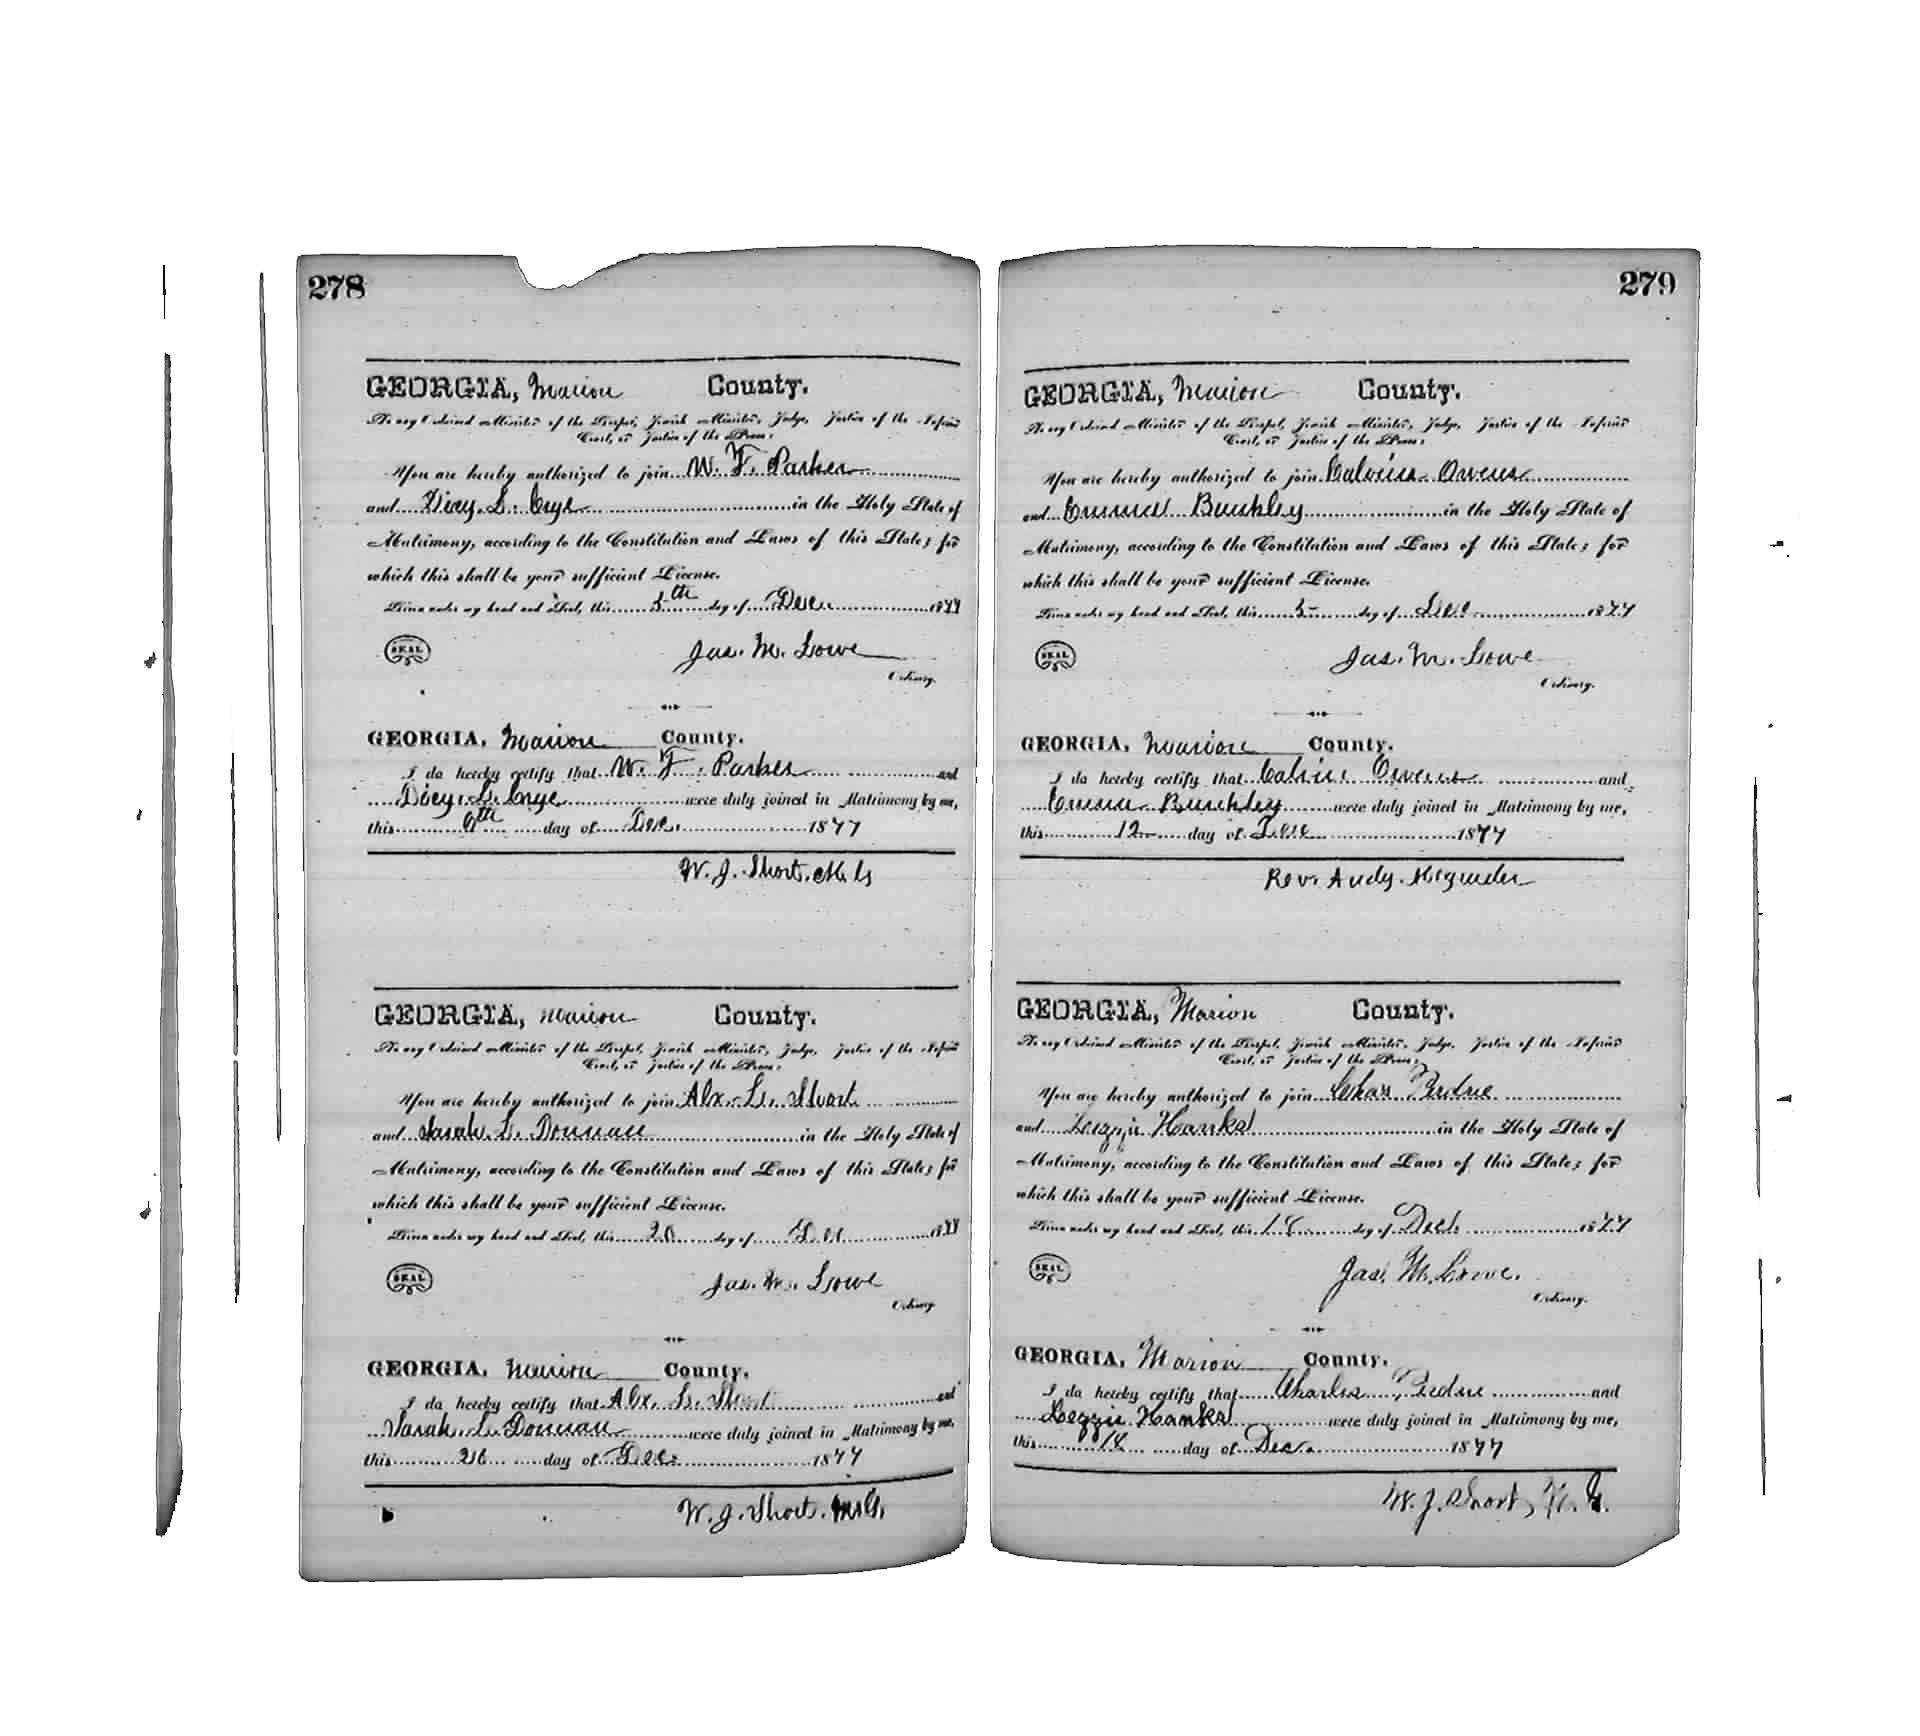 278
GEORGIA, Marion County.
To any Ordained Minister of the Gospel, Jewish Minister, Judge, Justice of the Inferior
Court, or Justice of the Peace:
You are hereby authorized to join W. F. Parker
and Dicy. L. Cryc in the Holy State of
Matrimony, according to the Constitution and Laws of this State; for
which this shall be your sufficient License.
Given under my hand and Seal, this 5th day of Dec. 1877
SEAL
Jas. M. Lowe
Ordinary.
GEORGIA, Marion County.
I do hereby certify that W. F. Parker and
Dicy. L. were duly joined in Matrimony by me,
this 6th day of Dec. 1877
W. J. Short. M. G
GEORGIA, Marion County.
To any Ordained Minister of the Gospel, Jewish Minister, Judge, Justice of the Inferior
Court, or Justice of the Peace:
You are hereby authorized to join Alx. L. Short
and Sarah. L. Dorman in the Holy State of
Matrimony, according to the Constitution and Laws of this State; for
which this shall be your sufficient License.
Given under my hand and Seal, this 20 day of Dec 1877
SEAL
Jas. M. Lowe
Ordinary.
GEORGIA, Marion County.
I do hereby certify that Alx. L. Short and
Sarah. L. Dorman were duly joined in Matrimony by me,
this day of Dec. 1877
W. J. Short. M. G.
279
GEORGIA, Marion County.
To any Ordained Minister of the Gospel, Jewish Minister, Judge, Justice of the Inferior
Court, or Justice of the Peace:
You are hereby authorized to join Owens
and Emma Bunkley in the Holy State of
Matrimony, according to the Constitution and Laws of this State; for
which this shall be your sufficient License.
Given under my hand and Seal, this 5 day of Dec 1877
SEAL
Jas. M. Lowe
Ordinary.
GEORGIA, Marion County.
I do hereby certify that Owens and
Emma Bunkley were duly joined in Matrimony by me,
this 12 day of Dec 1877
Rev. Andy.
GEORGIA, Marion County.
To any Ordained Minister of the Gospel, Jewish Minister, Judge, Justice of the Inferior
Court, or Justice of the Peace:
You are hereby authorized to join Chas Perdue
and Lizzie Hanks in the Holy State of
Matrimony, according to the Constitution and Laws of this State; for
which this shall be your sufficient License.
Given under my hand and Seal, this day of Dec. 1877
SEAL
Jas. M. Lowe.
Ordinary.
GEORGIA, Marion County.
I do hereby certify that Charles Perdue and
Lizzie Hanks were duly joined in Matrimony by me,
this day of Dec. 1877
W. J. Short, M. G.